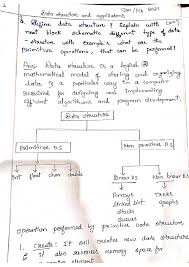 Data structure and applications
Define data structure & Explain with
neat block schematic different type of data
structure with example's what are the
primitive operations, that can be performed?
Ans: Data structure is a logical
mathematical model of storing and organizing
data in a particular way in a computer
required for designing and implementing
efficient algorithms and program development.
Data structure
Primitive D.S
Non primitive D.S
int float char double
linear DS
Non linear DS
Arrays
Trees
linked list
graphs
stacks
queues
operation performed by primitive Data structure
1. Create: It will create new data structure
it also reserves memory space for